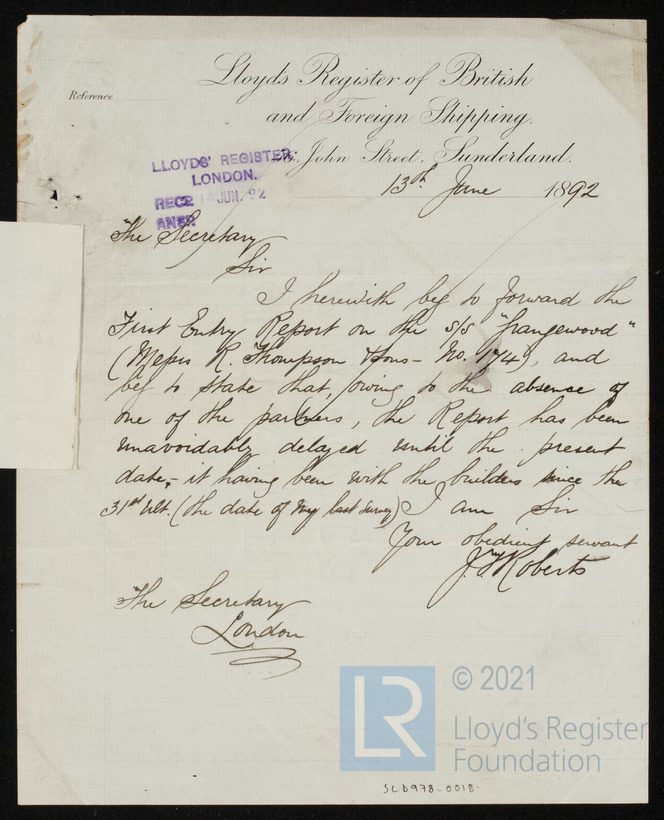 Lloyd's Register of British
and Foreign Shipping.
Reference
John Street, Sunderland.
LLOYDS' REGISTER,
LONDON.
RECD 14 JUN. 92
ANSR
13th June 1892
The Secretary
Sir
I herewith beg to forward the
First Entry Report on the s/s "Grangewood"
(Messrs R. Thompson & Sons - No. 174), and
beg to state that, owing to the absence of
one of the partners, the Report has been
unavoidably delayed until the present
date, - it having been with the builders since the
31st ult. (the date of my last survey) I am Sir
Your obedient servant
Roberts
The Secretary
London
LR
© 2021
Lloyd's Register
Foundation
SLD978-0018